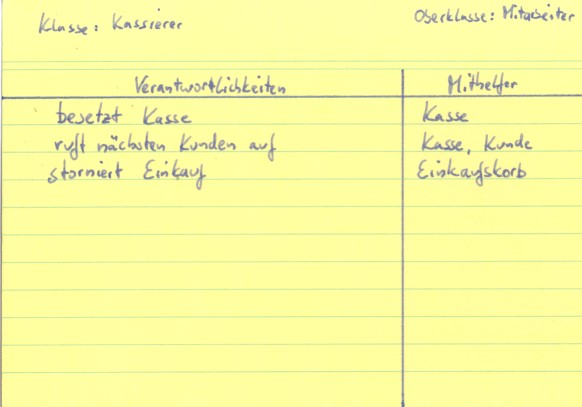 Klasse: Kassierer Oberklasse: Mitarbeiter
Verantwortlichkeiten Mithelfer
besetzt Kasse Kasse
ruft nächsten Kunden auf Kasse, Kunde
storniert Einkauf Einkaufskorb